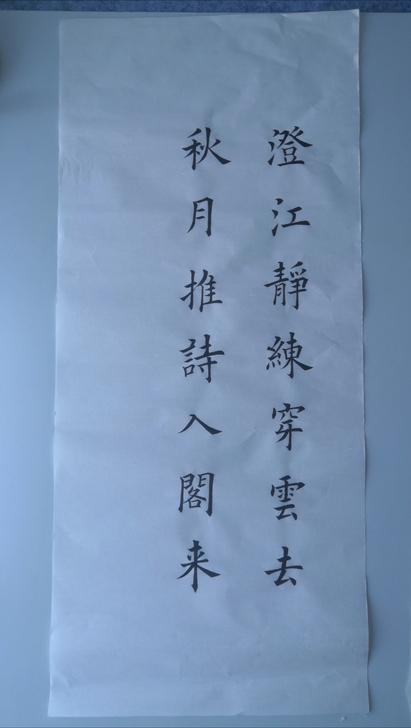 澄江靜練穿雲去
秋月推詩入閣来